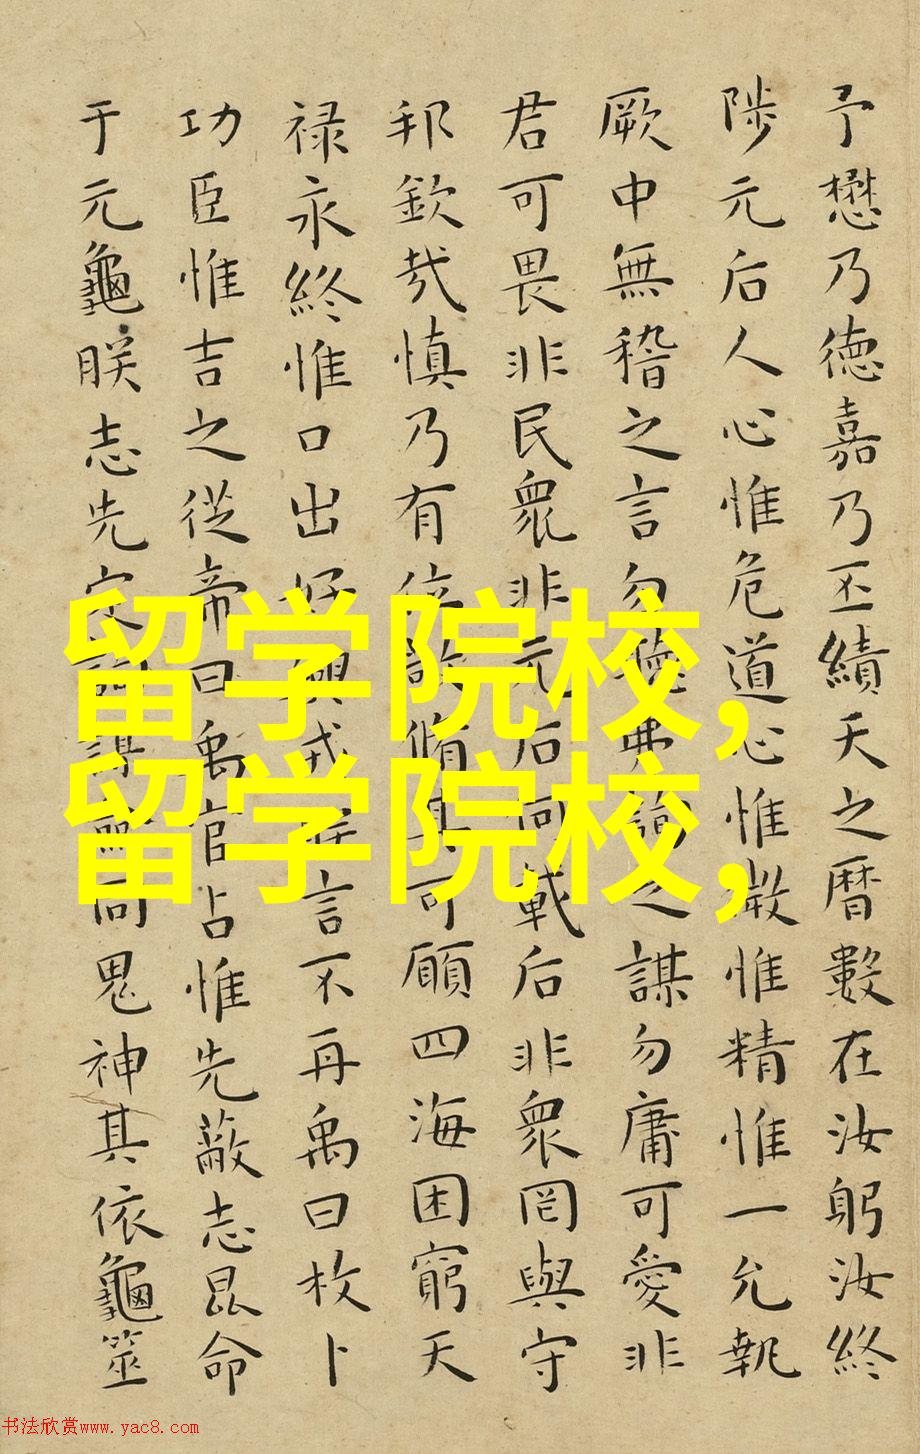 予懋乃德嘉乃丕績天之曆數在汝躬汝終
陟元后人心惟危道心惟微惟精惟一允執
厥中無稽之言勿聽弗詢之謀勿庸可愛非
君可畏非民衆非元后何戴后非衆罔與守
邦欽哉慎乃有位敬脩其可願四海困窮天
禄永終惟口出好興戎朕言不再禹曰枚卜
功臣惟吉之從帝曰禹官占惟先蔽志昆命
于元龜朕志先定詢謀僉同鬼神其依龜筮
留学院校,
留学院校,
书法欣赏www.yac8.com